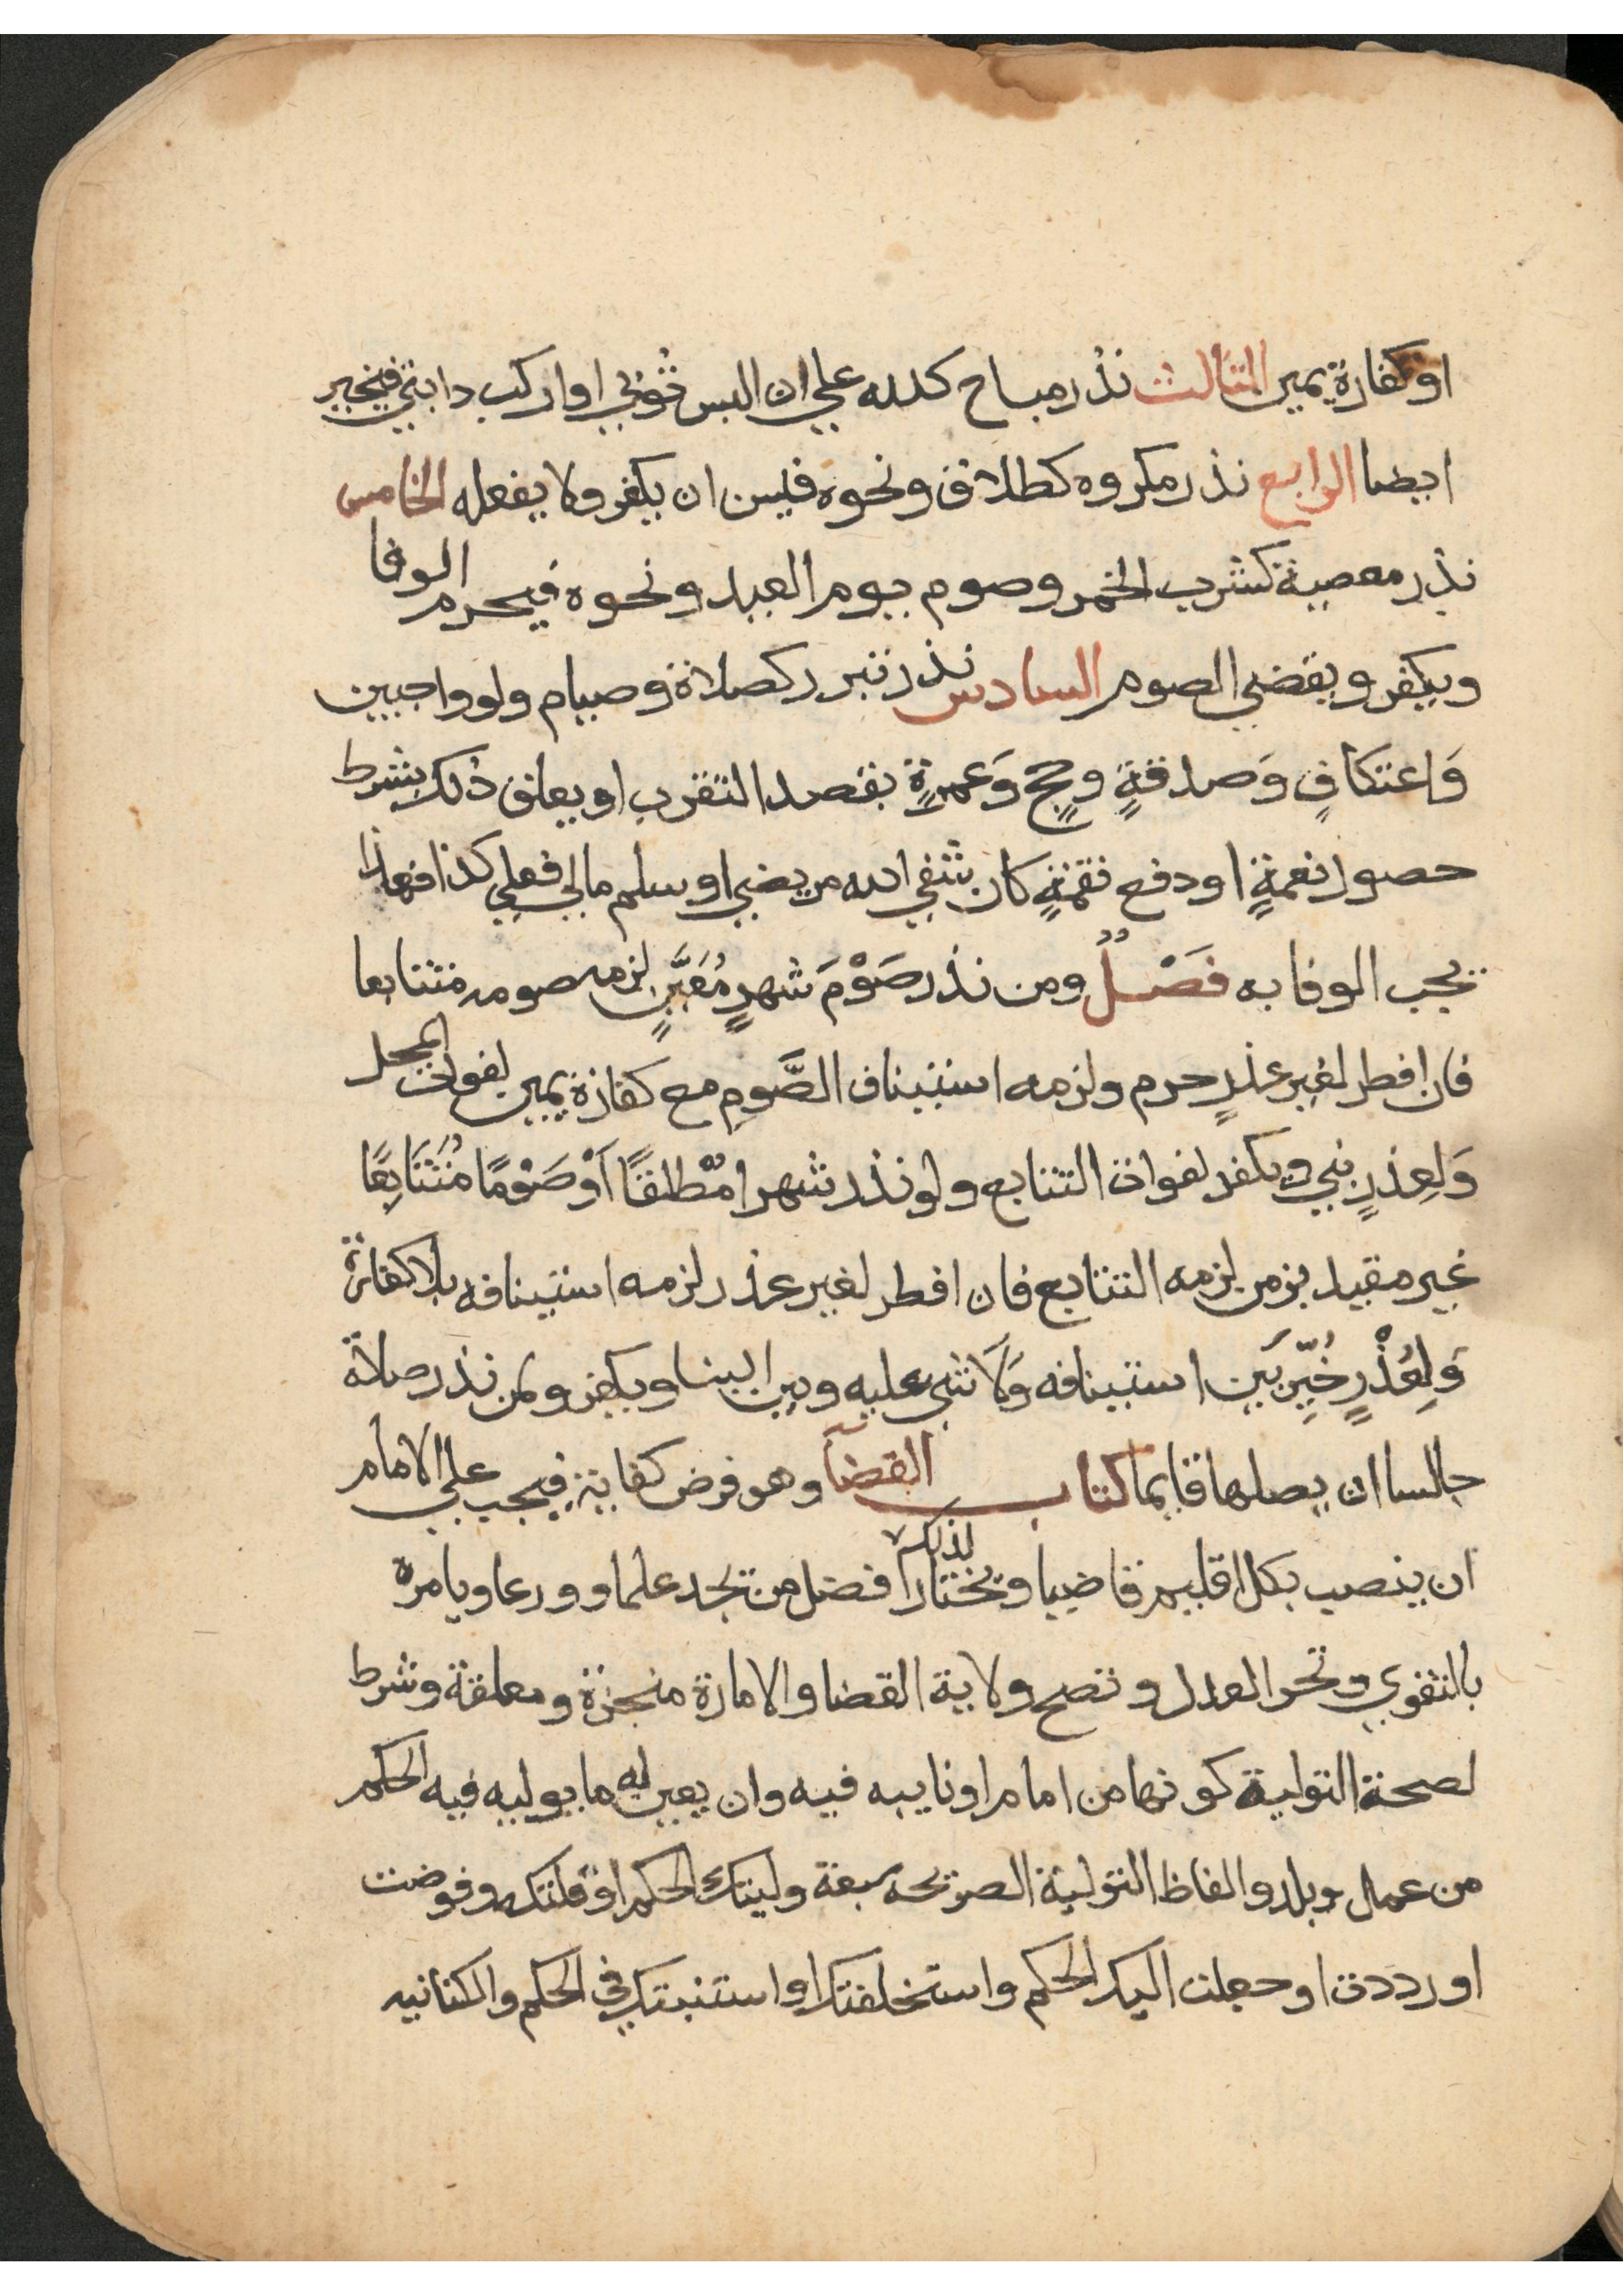 او كفارة يمين الثالث نذر مباح كلله علي ان البس ثوبي او اركب دابتي فيخير
ايضا الرابع نذر مكروه كطلاق ونحوه فيسن ان يكفر ولا يفعله الخامس
نذر معصية كشرب الخمر وصوم يوم العيد ونحوه فيحرم الوفا
ويكفر ويقضي الصوم السادس نذر تبرر كصلاة وصيام ولو واجبين
وَاعتكافٍ وَصدقةٍ وحجٍّ وَعمرةٍ بقصد التقرب او يعلق ذلك بشرط
حصول نعمةٍ او دفع نقمةٍ كان شفي الله مريضي او سلم مالي فعلي كذا فهذا
يجب الوفا به فَصْلٌ ومن نذر صَوْمَ شهرٍ مُعَيَّنٍ لزمه صومه متتابعا
فان افطر لغير عذرٍ حرم ولزمه استيناف الصَّومِ مع كفارة يمين لفوات المحل
وَلِعذرٍ بني ويكفر لفوات التتابع ولو نذر شهرا مُطلقًا اَوْ صَوْمًا مُتَتَابِعًا
غير مقيد بزمن لزمه التتابع فان افطر لغير عذر لزمه استينافه بلا كفارة
وَلِعُذْرٍ خُيِّرَ بَين استينافه وَلَا شي عليه وبين البنا ويكفر ولمن نذر صلاة
جالسا ان يصلها قايما كتاب القضآ وهو فرض كفاية فيجب علي الامام
ان ينصب بكل اقليم قاضيا ويختار لذلك افضل من يجد علما وورعا ويامره
بالتقوي وتحر العدل وتصح ولاية القضا والامارة منجزة ومعلقة وشرط
لصحة التولية كونها من امام او نايبه فيه وان يعين له ما يوليه فيه الحكم
من عمل وبلد والفاظ التولية الصريحه سبعة وليتك الحكم او قلدتك وفوضت
او رددت او جعلت اليك الحكم واستخلفتك او استنبتك في الحكم والكنانيه